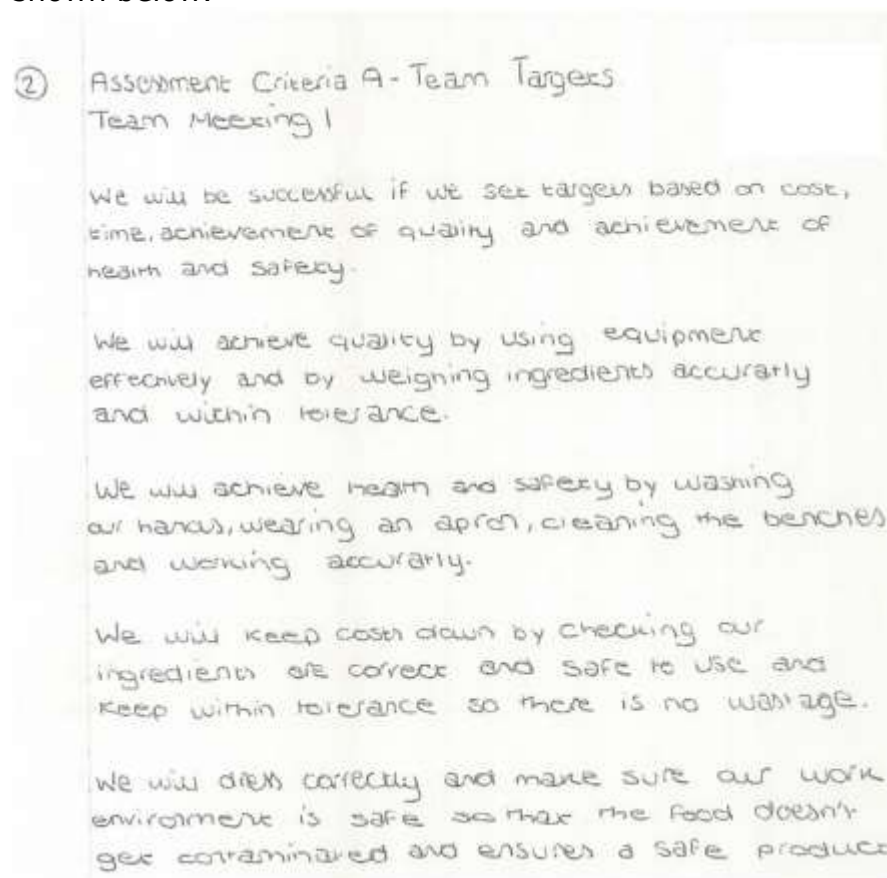 ② Assessment Criteria A - Team Targets
Team Meeting 1
We will be successful if we set targets based on cost,
time, achievement of quality and achievement of
health and safety.
We will achieve quality by using equipment
effectively and by weighing ingredients accuratly
and within tolerance.
We will achieve health and safety by washing
our hands, wearing an apron, cleaning the benches
and working accuratly.
We will keep costs down by checking our
ingredients are correct and safe to use and
keep within tolerance so there is no wastage.
We will dress correctly and make sure our work
environment is safe so that the food doesn't
get contaminated and ensures a safe product